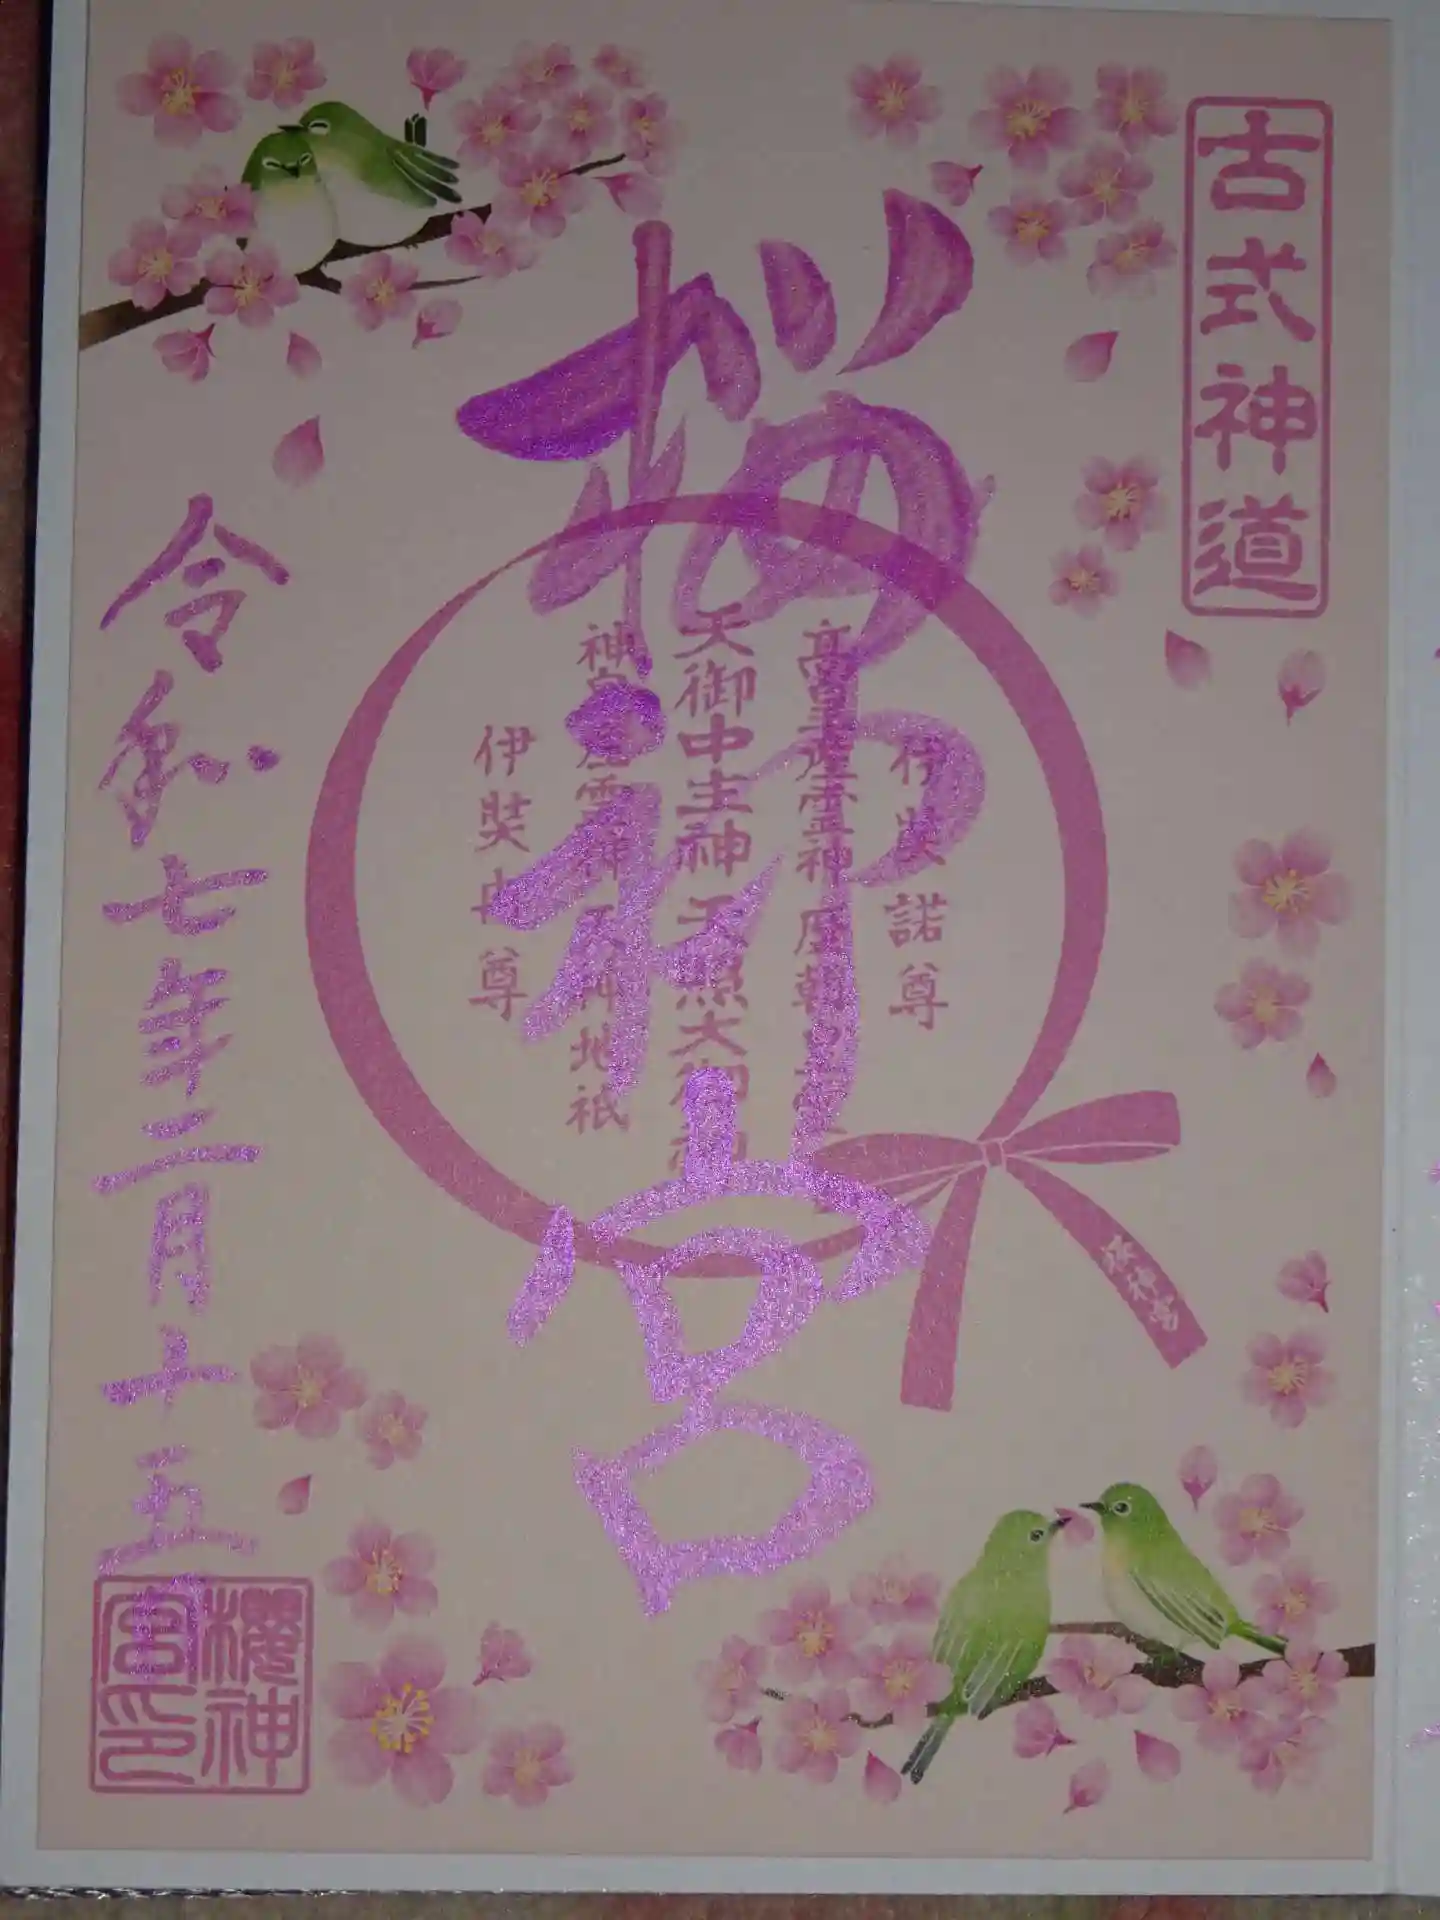 古式神道
桜神宮
伊奘諾尊
高皇産霊神 歴朝皇霊
天御中主神 天照大御神
神皇産霊神 天神地祇
伊奘冉尊
桜神宮
令和七年三月十五日
櫻神宮印